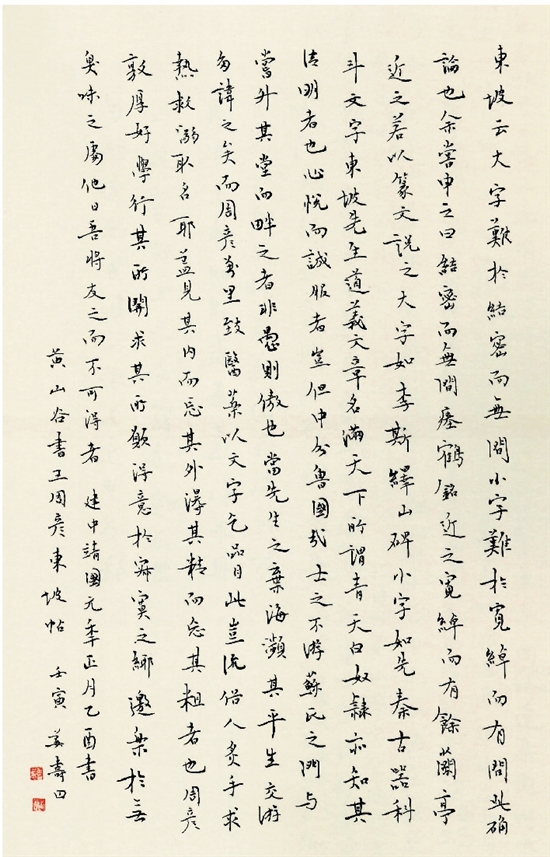 東坡云大字難於結密而無間小字難於寬綽而有間此确
論也余嘗申之曰結密而無間瘞鶴銘近之寬綽而有餘蘭亭
近之若以篆文說之大字如李斯繹山碑小字如先秦古器科
斗文字東坡先生道義文章名滿天下所謂青天白奴隸亦知其
清明者也心悅而誠服者豈但中分魯國哉士之不游蘇氏之門與
嘗升其堂而畔之者非愚則傲也當先生之棄海瀕其平生交游
多諱之矣而周彦萬里致醫藥以文字乞品目此豈流俗人炙手求
熱救溺取名耶蓋見其内而忘其外得其精而忘其粗者也周彦
敦厚好學行其所聞求其所願得意於寂寞之鄉邀樂於無
臭味之處他日吾將友之而不可得者 建中靖國元年正月乙酉書
黄山谷書王周彦東坡帖 壬寅 姜壽田